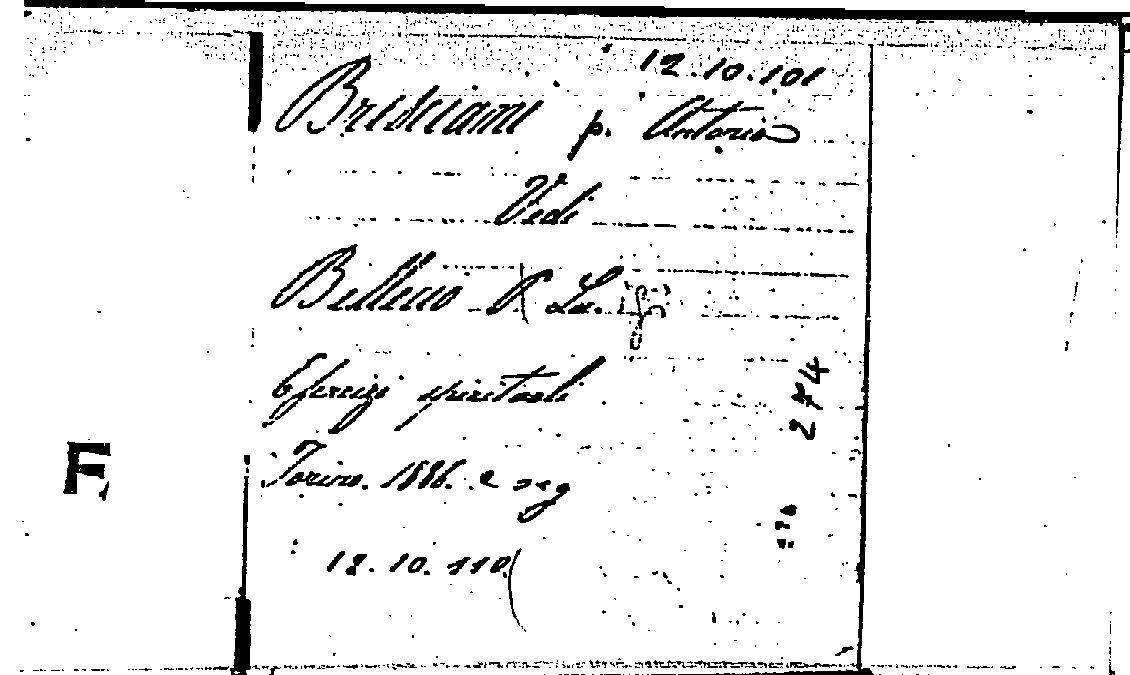 12.10.101
Bresciani p. Antonio
Vedi
Bellecio P. Luigi
Esercizi spirituali
Torino. 1886. e seg
F
12.10.110
274